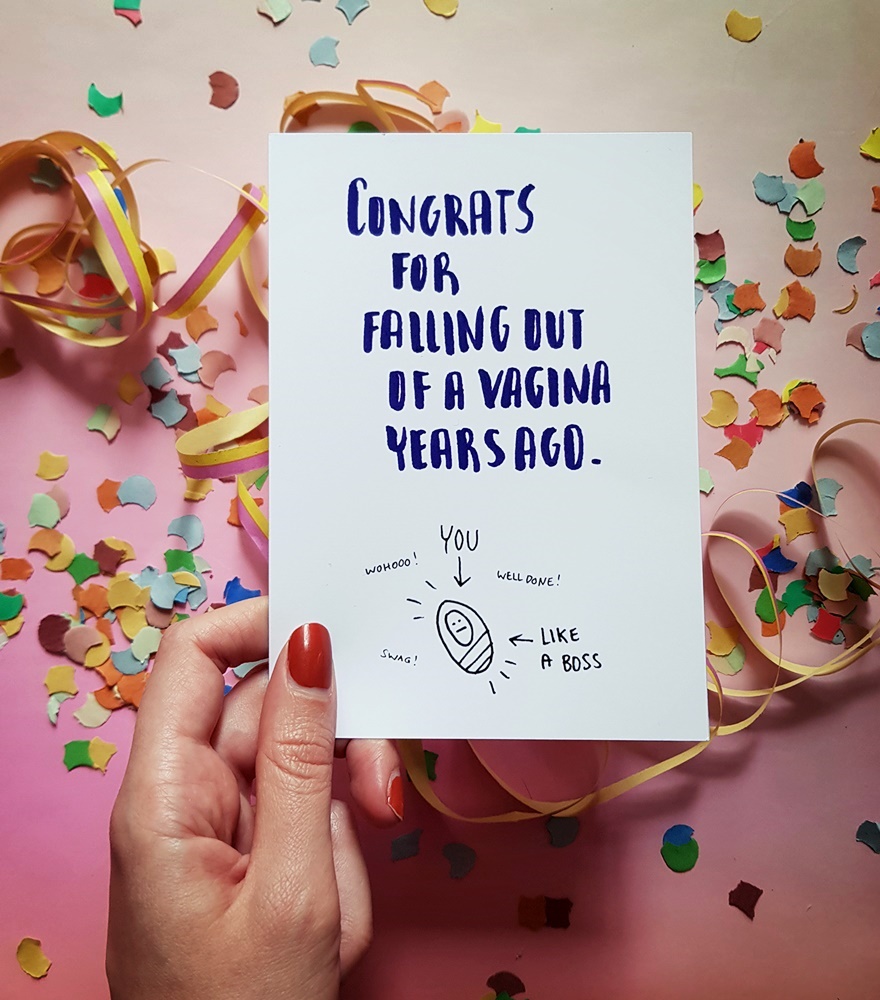 CONGRATS
FOR
FALLING OUT
OF A VAGINA
YEARS AGO.
YOU
WOHOOO!
WELL DONE!
LIKE
A BOSS
SWAG!